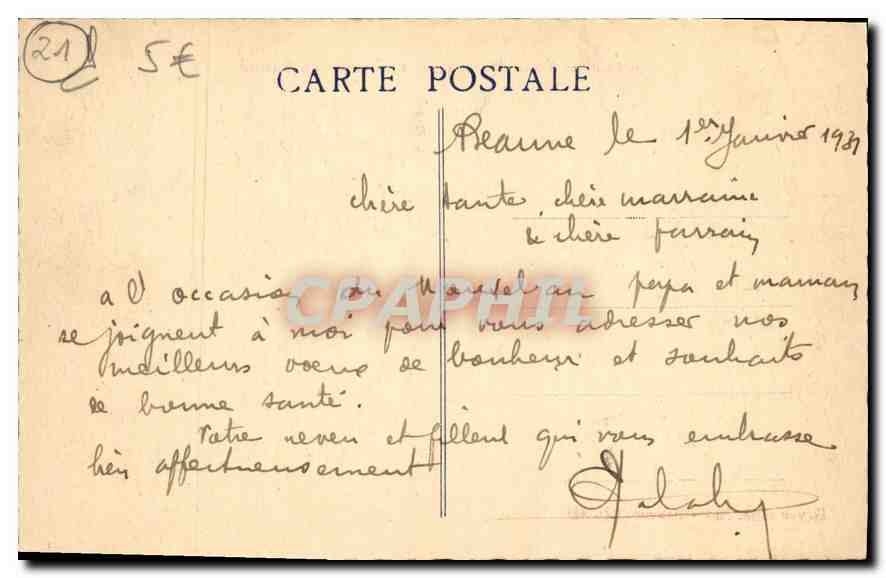 21
5€
CARTE POSTALE
Beaune le 1er Janvier 1931
chère tante, chère marraine
& chère parrain
CPAPHIL
a l'occasion du Nouvel an papa et maman
se joignent à moi pour vous adresser nos
meilleurs voeux de bonheur et souhaits
de bonne santé.
Votre neveu et filleul qui vous embrasse
bien affectueusement